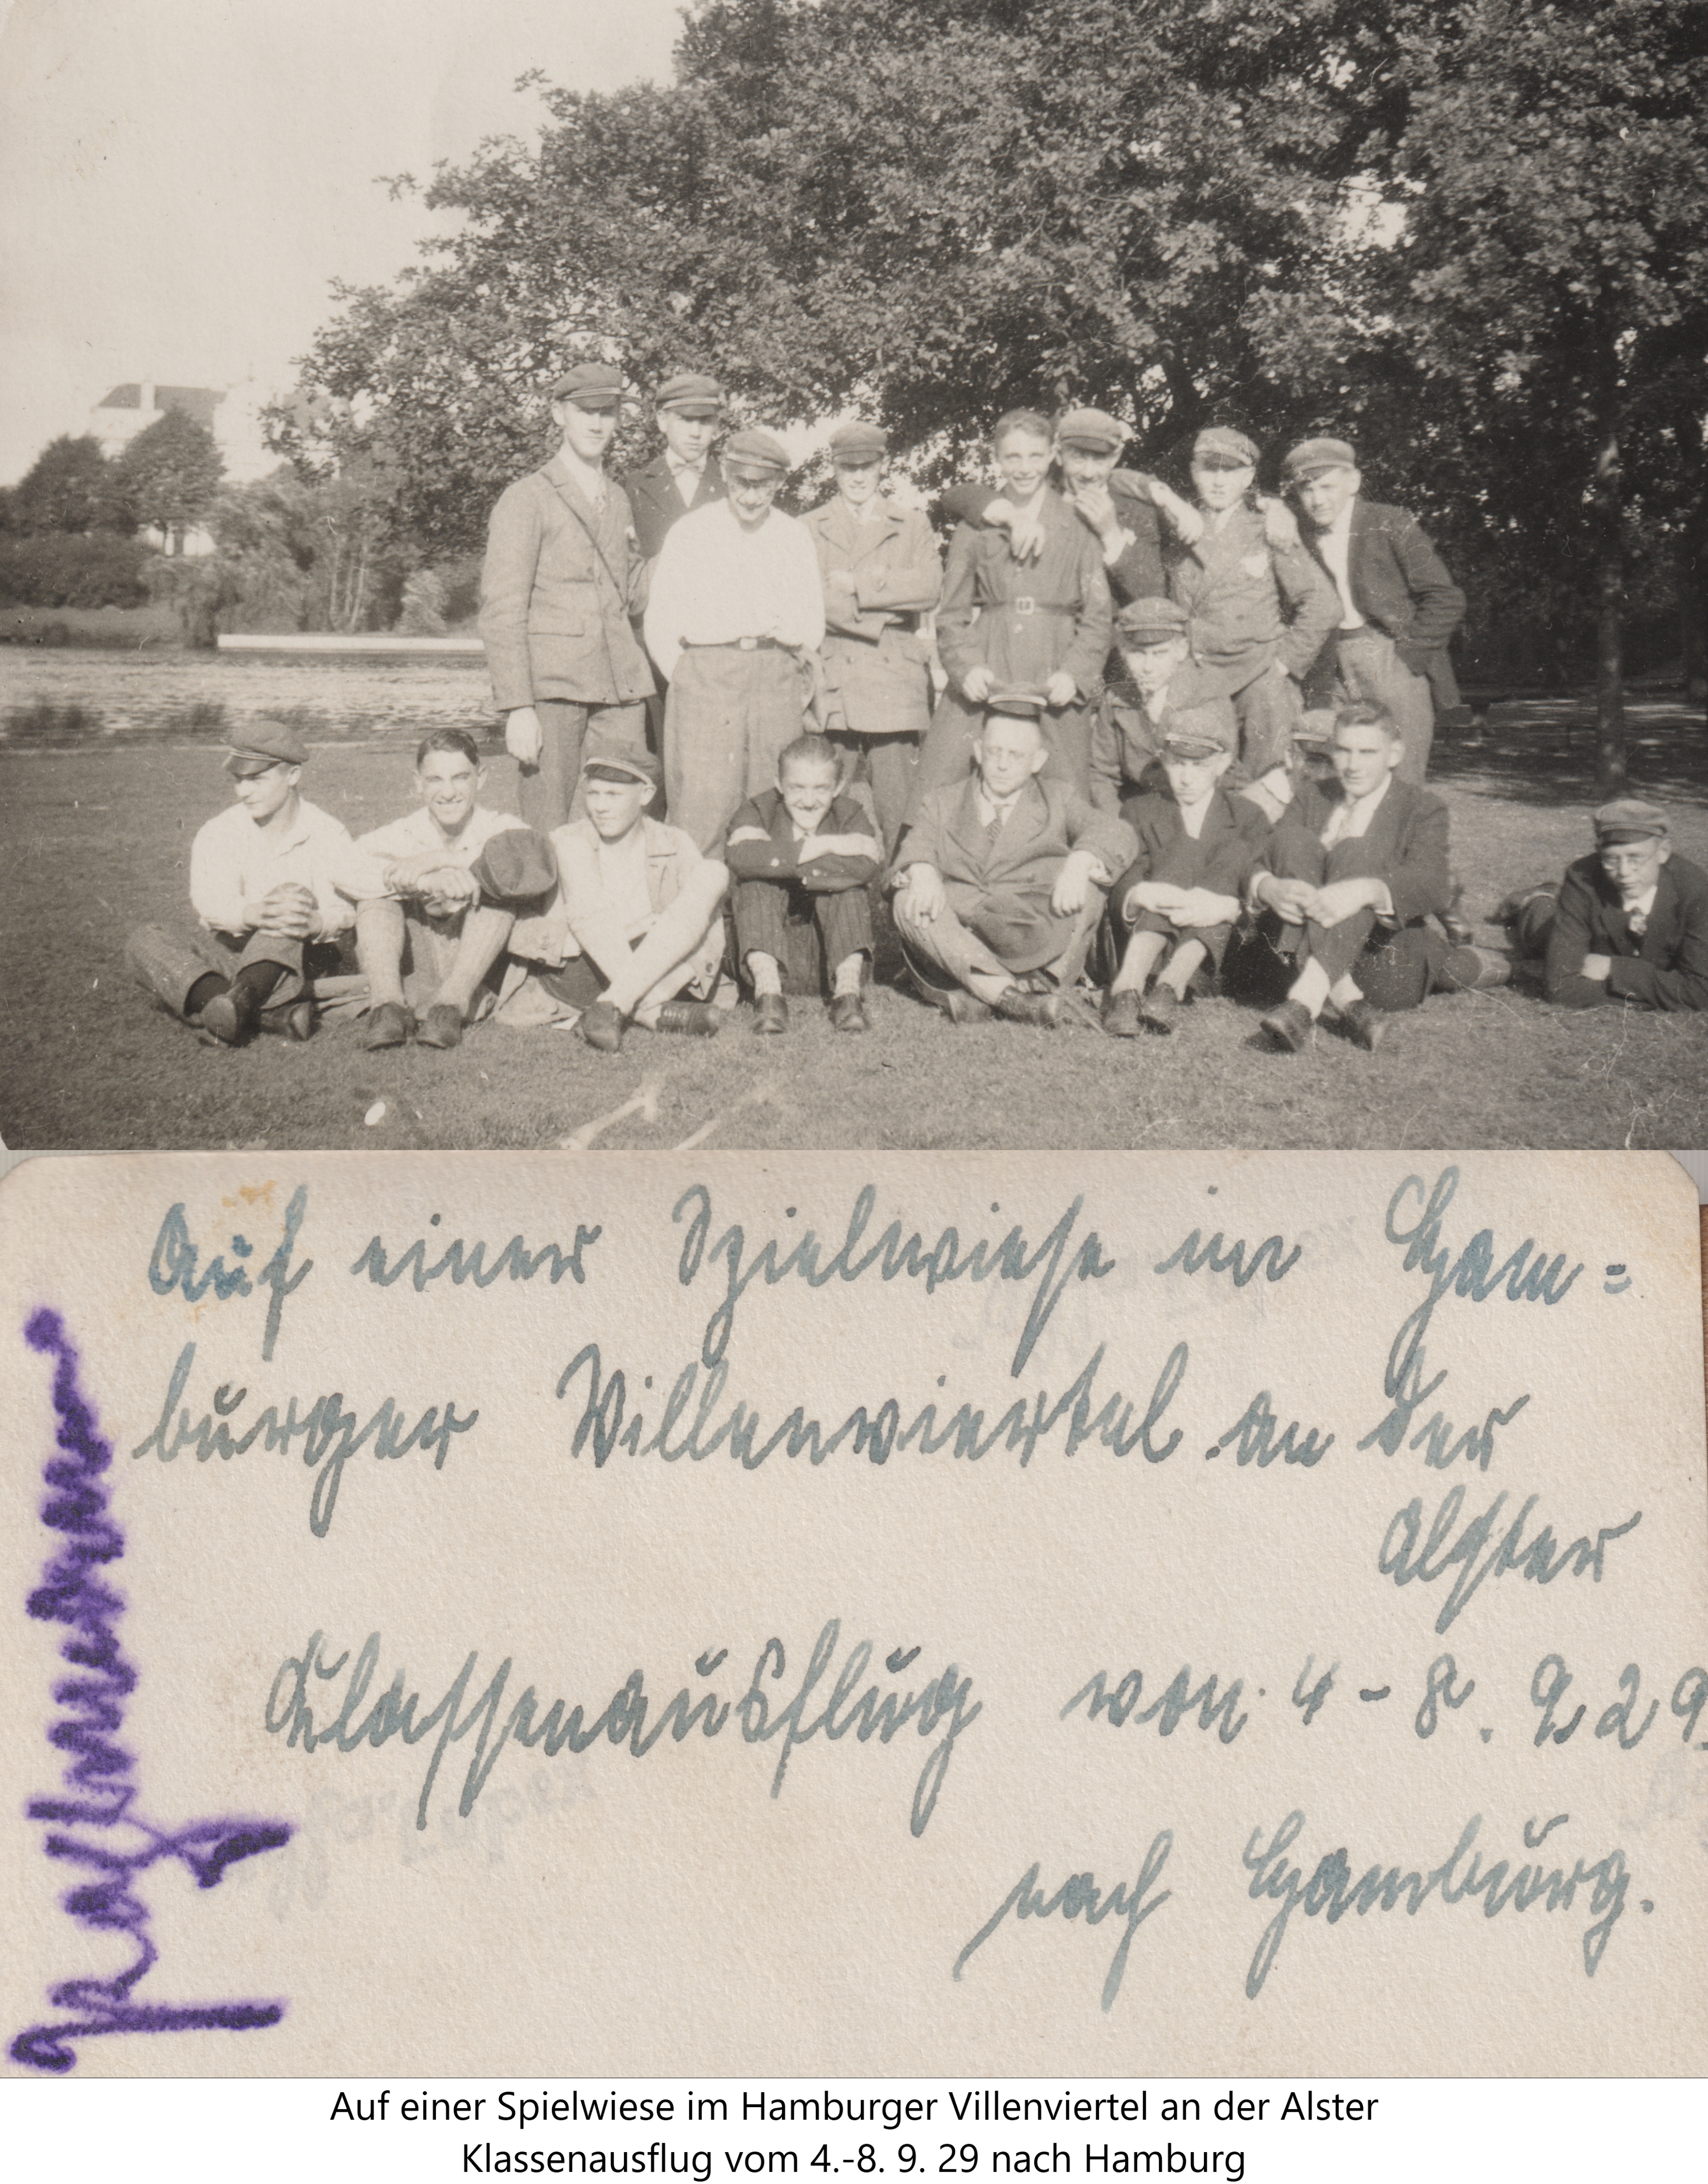 Auf einer Spielwiese im Ham=
burger Villenviertel an der
Alster
Klassenausflug vom 4-8. 9. 29.
nach Hamburg.
Auf einer Spielwiese im Hamburger Villenviertel an der Alster
Klassenausflug vom 4.-8. 9. 29 nach Hamburg